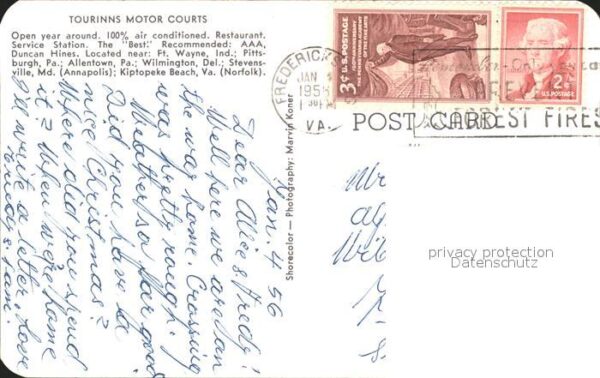 TOURINNS MOTOR COURTS
Open year around. 100% air conditioned. Restaurant.
Service Station. The "Best." Recommended: AAA,
Duncan Hines. Located near: Ft. Wayne, Ind.; Pitts-
burgh, Pa.; Allentown, Pa.; Wilmington, Del.; Stevens-
ville, Md. (Annapolis); Kiptopeke Beach, Va. (Norfolk).
Jan. 4 56
Dear Alice & Fredy!
Well here we are on
the way home. Crossing
was pretty rough!
Weather so far good
Did you have a
nice Christmas?
Where did you spend
it? When we're home
I'll write a letter. Love
Shorecolor — Photography: Marvin Koner
FREDERICK
JAN
195
PM
VA.
3¢ U.S. POSTAGE
THE PENNSYLVANIA ACADEMY
OF THE FINE ARTS
2¢
U.S. POSTAGE
Only you can
FOREST FIRES
POST CARD
privacy protection
Datenschutz